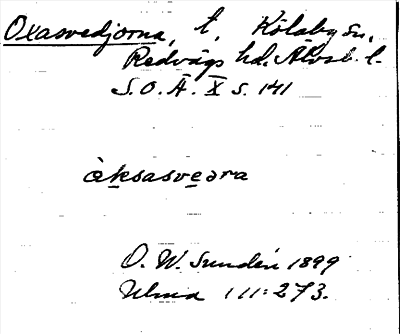 Oxasvedjorna, t, Kölaby sn,
Redvägs hd. Älvsb. l.
S.O.Ä. X s. 141
àksasveǝra
O. W. Sundén 1899
Ulma 111:273.